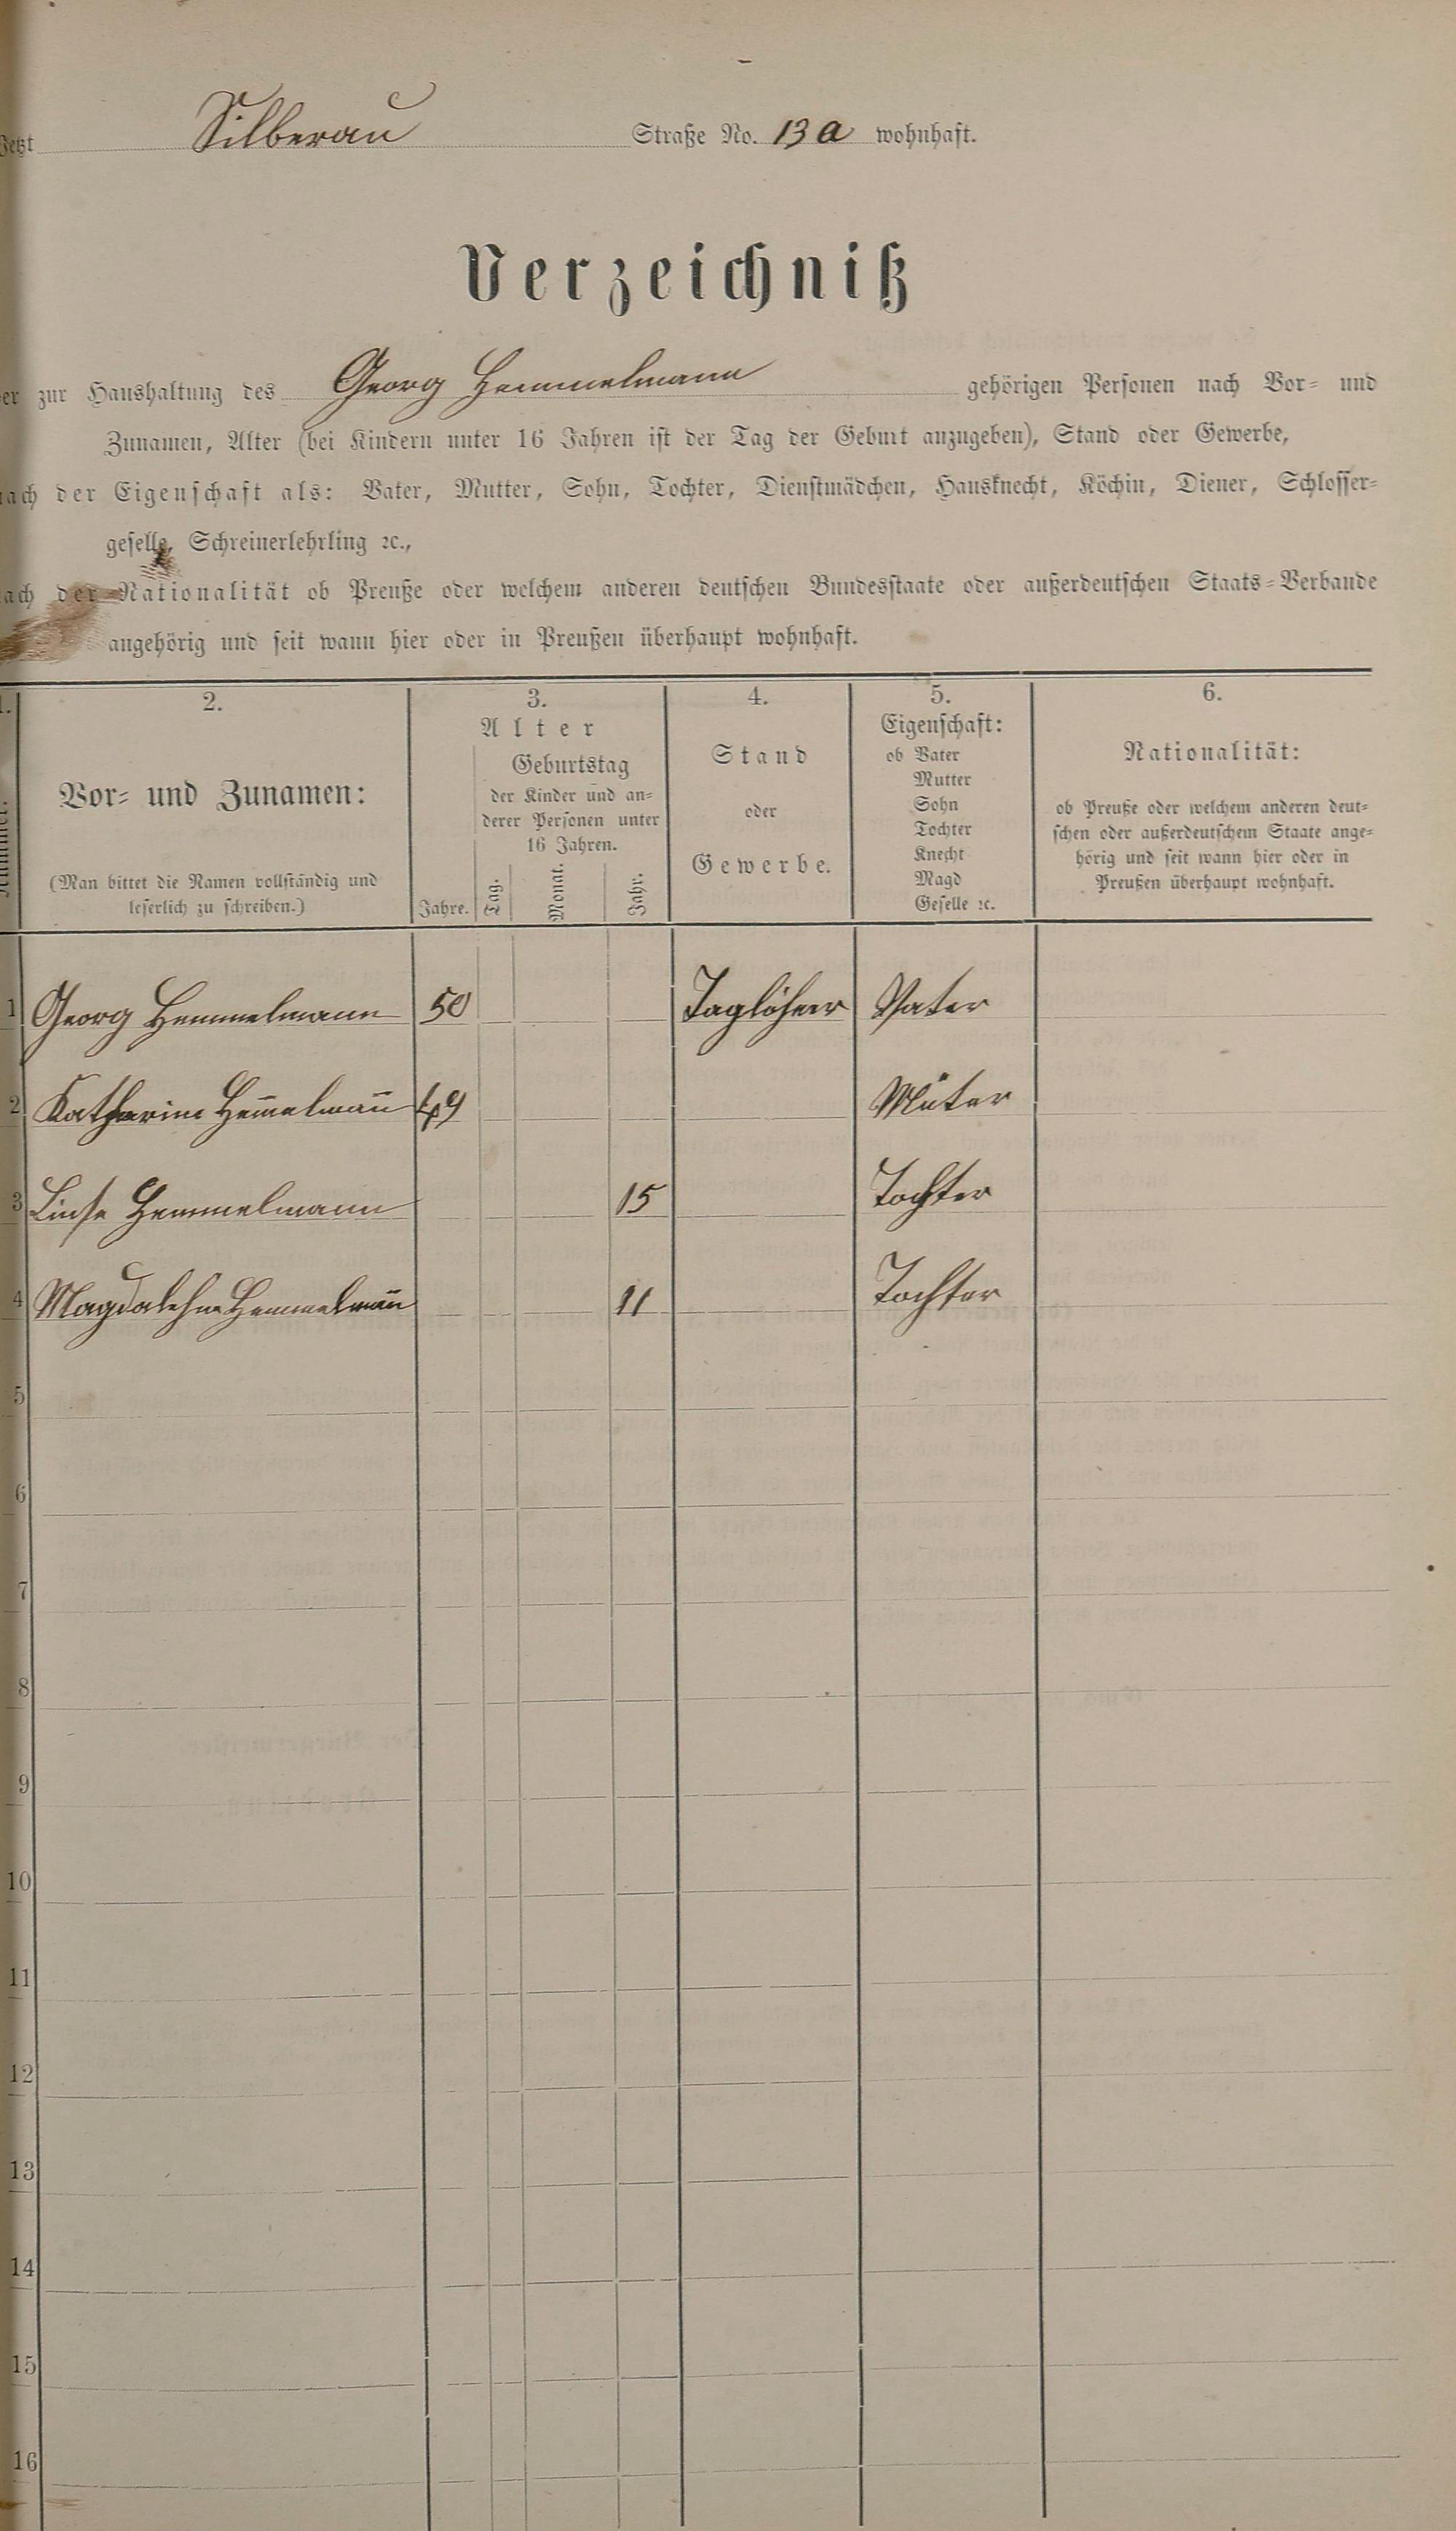 Jetzt Silberau Straße No. 13 a wohnhaft.
Verzeichniß
er zur Haushaltung des Georg Hemmelmann gehörigen Personen nach Vor- und
Zunamen, Alter (bei Kindern unter 16 Jahren ist der Tag der Geburt anzugeben), Stand oder Gewerbe,
nach der Eigenschaft als: Vater, Mutter, Sohn, Tochter, Dienstmädchen, Hausknecht, Köchin, Diener, Schlosser-
geselle, Schreinerlehrling ꝛc.,
ach der Nationalität ob Preuße oder welchem anderen deutschen Bundesstaate oder außerdeutschen Staats-Verbande
angehörig und seit wann hier oder in Preußen überhaupt wohnhaft.
1. 2. 3. 4. 5. 6.
Nummer.
Vor- und Zunamen:
(Man bittet die Namen vollständig und
leserlich zu schreiben.)
Alter
Geburtstag
der Kinder und an-
derer Personen unter
16 Jahren.
Jahre. Tag. Monat. Jahr.
Stand
oder
Gewerbe.
Eigenschaft:
ob Vater
Mutter
Sohn
Tochter
Knecht
Magd
Geselle ꝛc.
Nationalität:
ob Preuße oder welchem anderen deut-
schen oder außerdeutschem Staate ange-
hörig und seit wann hier oder in
Preußen überhaupt wohnhaft.
1 Georg Hemmelmann 50 Taglöhner Vater
2 Katharina Hem̄elman̄ 49 Muter
3 Hemmelmann 15 Tochter
4 Magdalehna Hemmelman̄ 11 Tochter
5
6
7
8
9
10
11
12
13
14
15
16